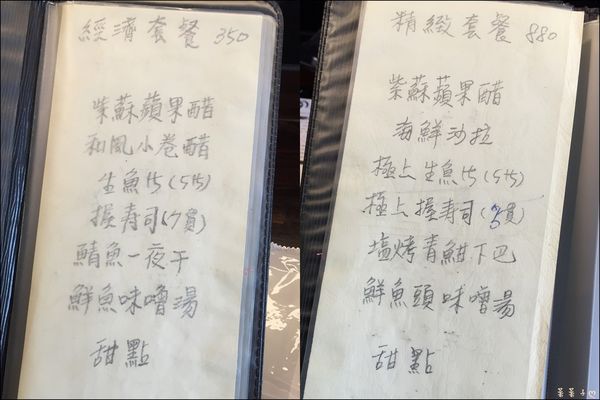 經濟套餐 350
紫蘇蘋果醋
和風小卷醋
生魚片(5片)
握寿司(7貫)
鯖魚一夜干
鮮魚味噌湯
甜點
精緻套餐 880
紫蘇蘋果醋
海鮮沙拉
極上生魚片(5片)
極上握寿司(3貫)
塩烤青魽下巴
鮮魚頭味噌湯
甜點
葉葉子